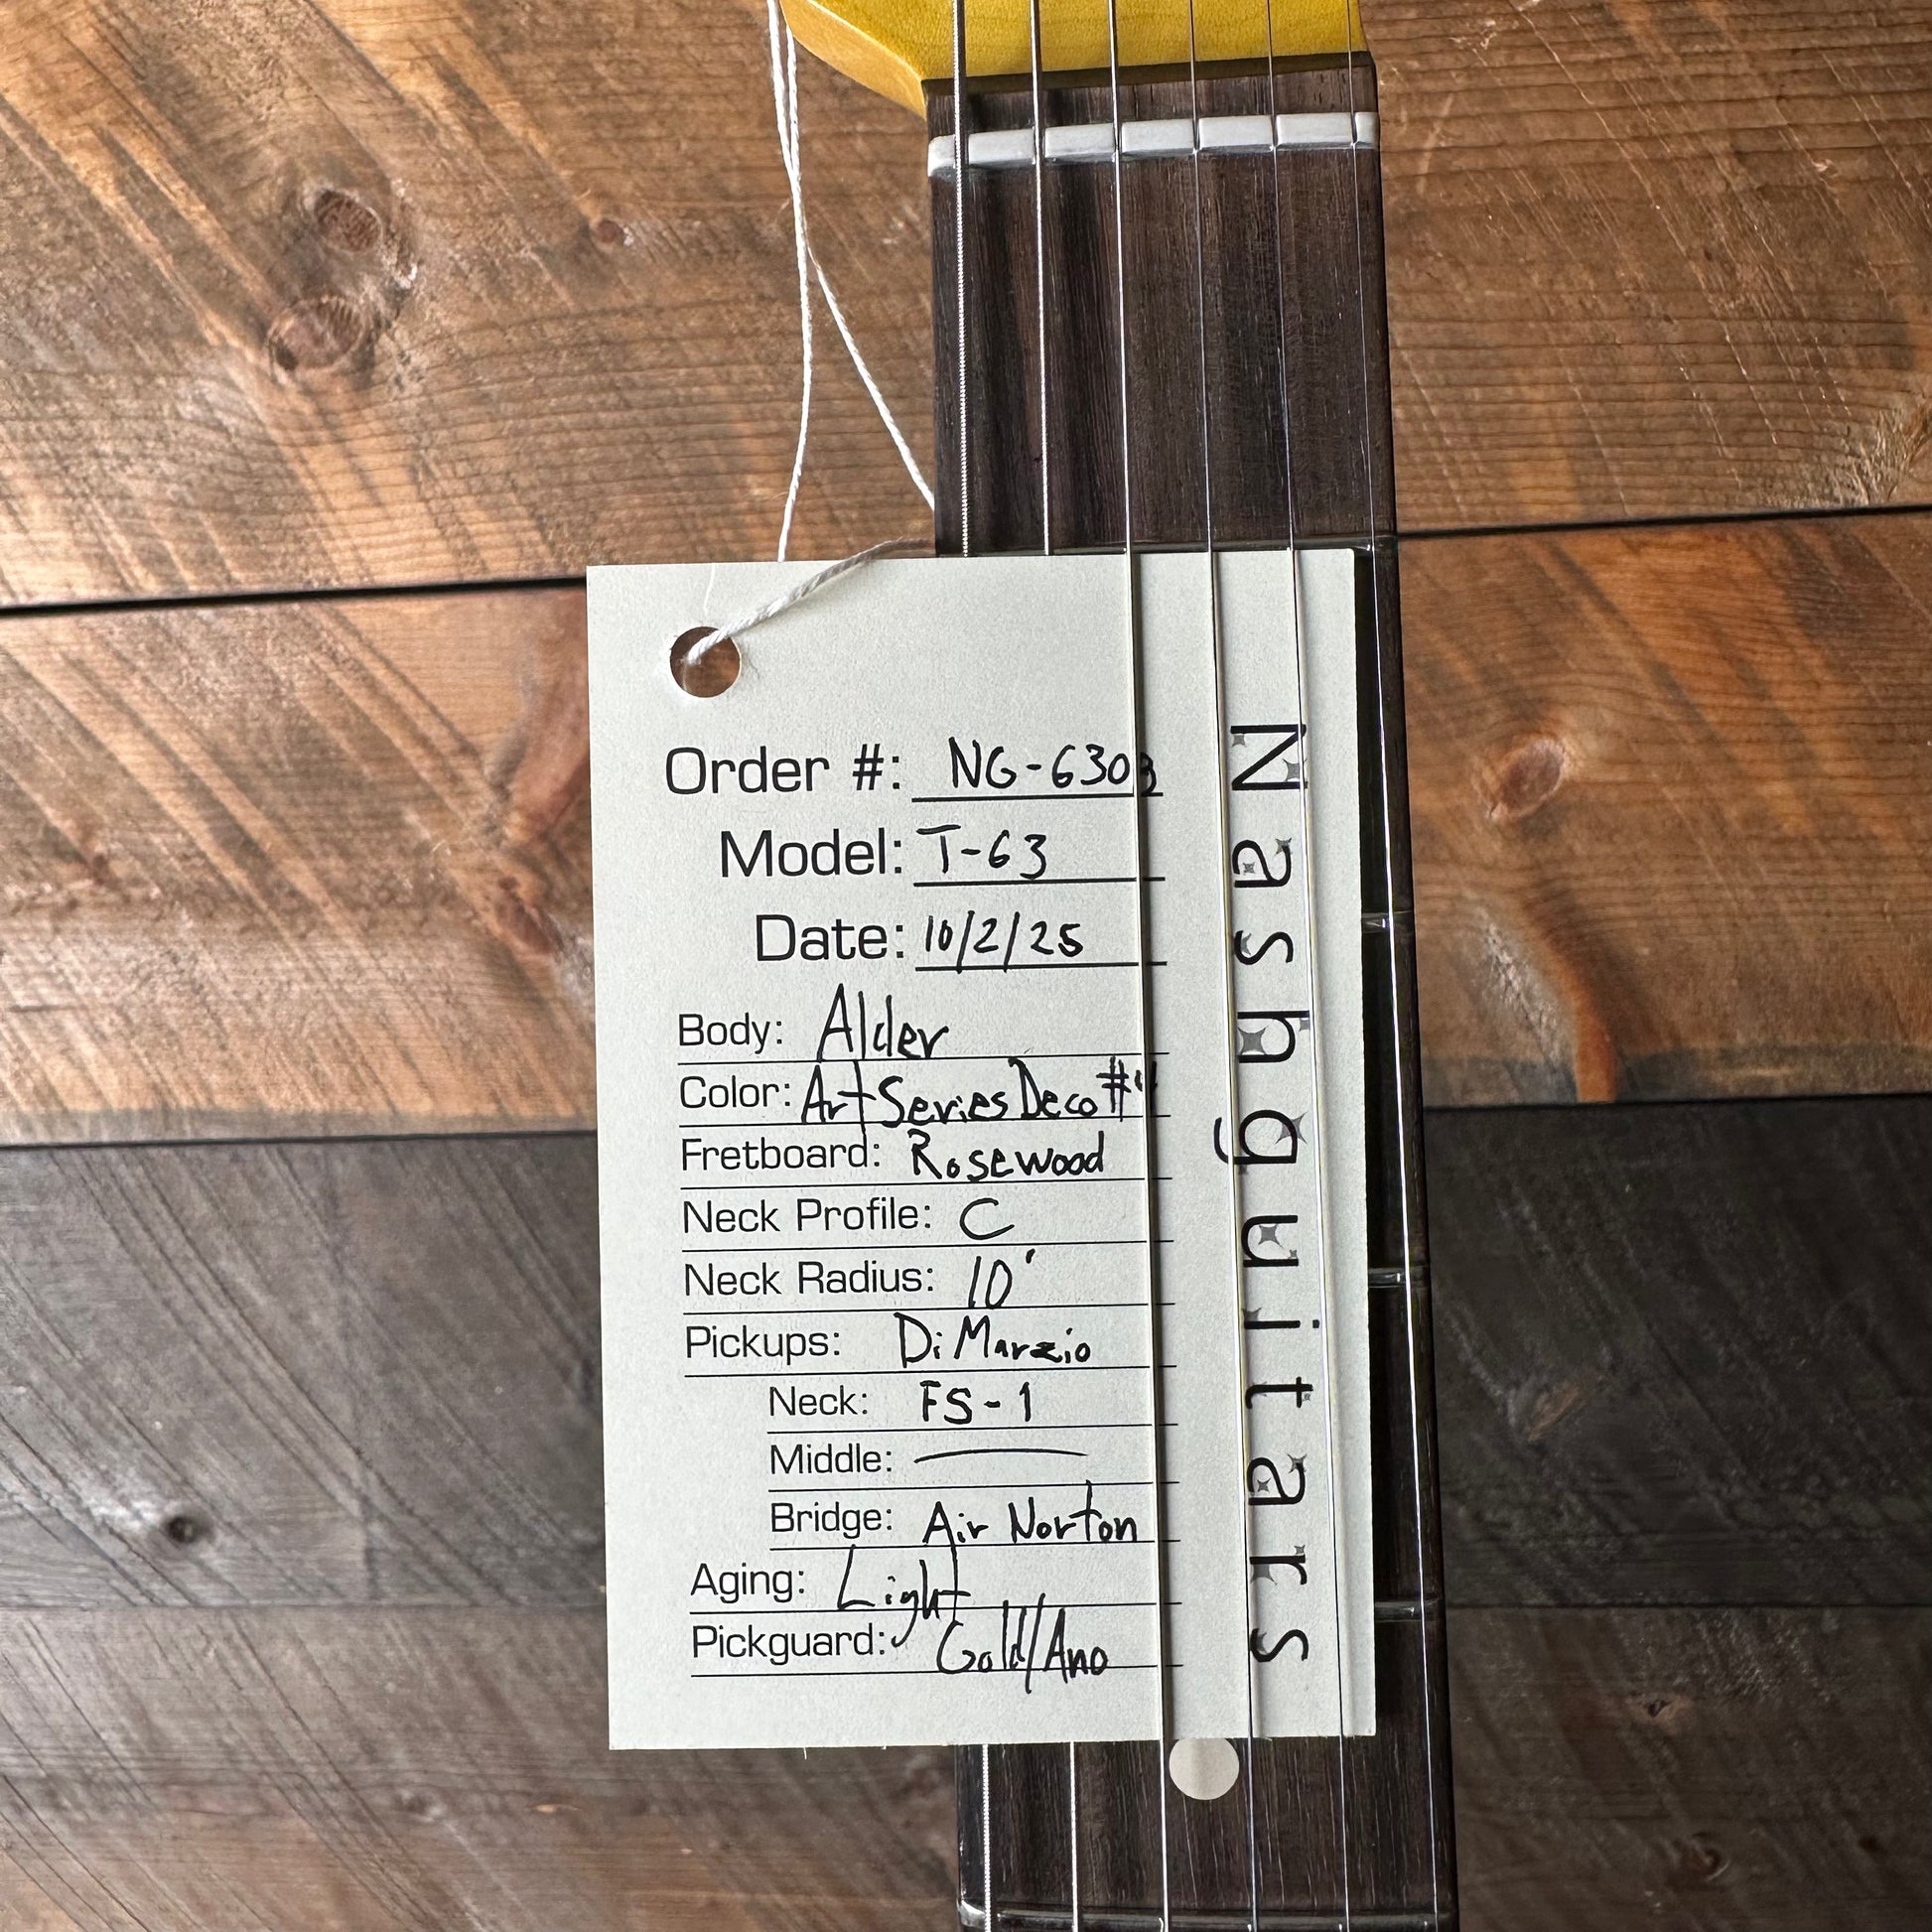 Order #: NG-6303
Model: T-63
Date: 10/2/25
Body: Alder
Color: Art Series Deco #4
Fretboard: Rosewood
Neck Profile: C
Neck Radius: 10'
Pickups: DiMarzio
Neck: FS-1
Middle: —
Bridge: Air Norton
Aging: Light
Pickguard: Gold/Ano
Nashguitars